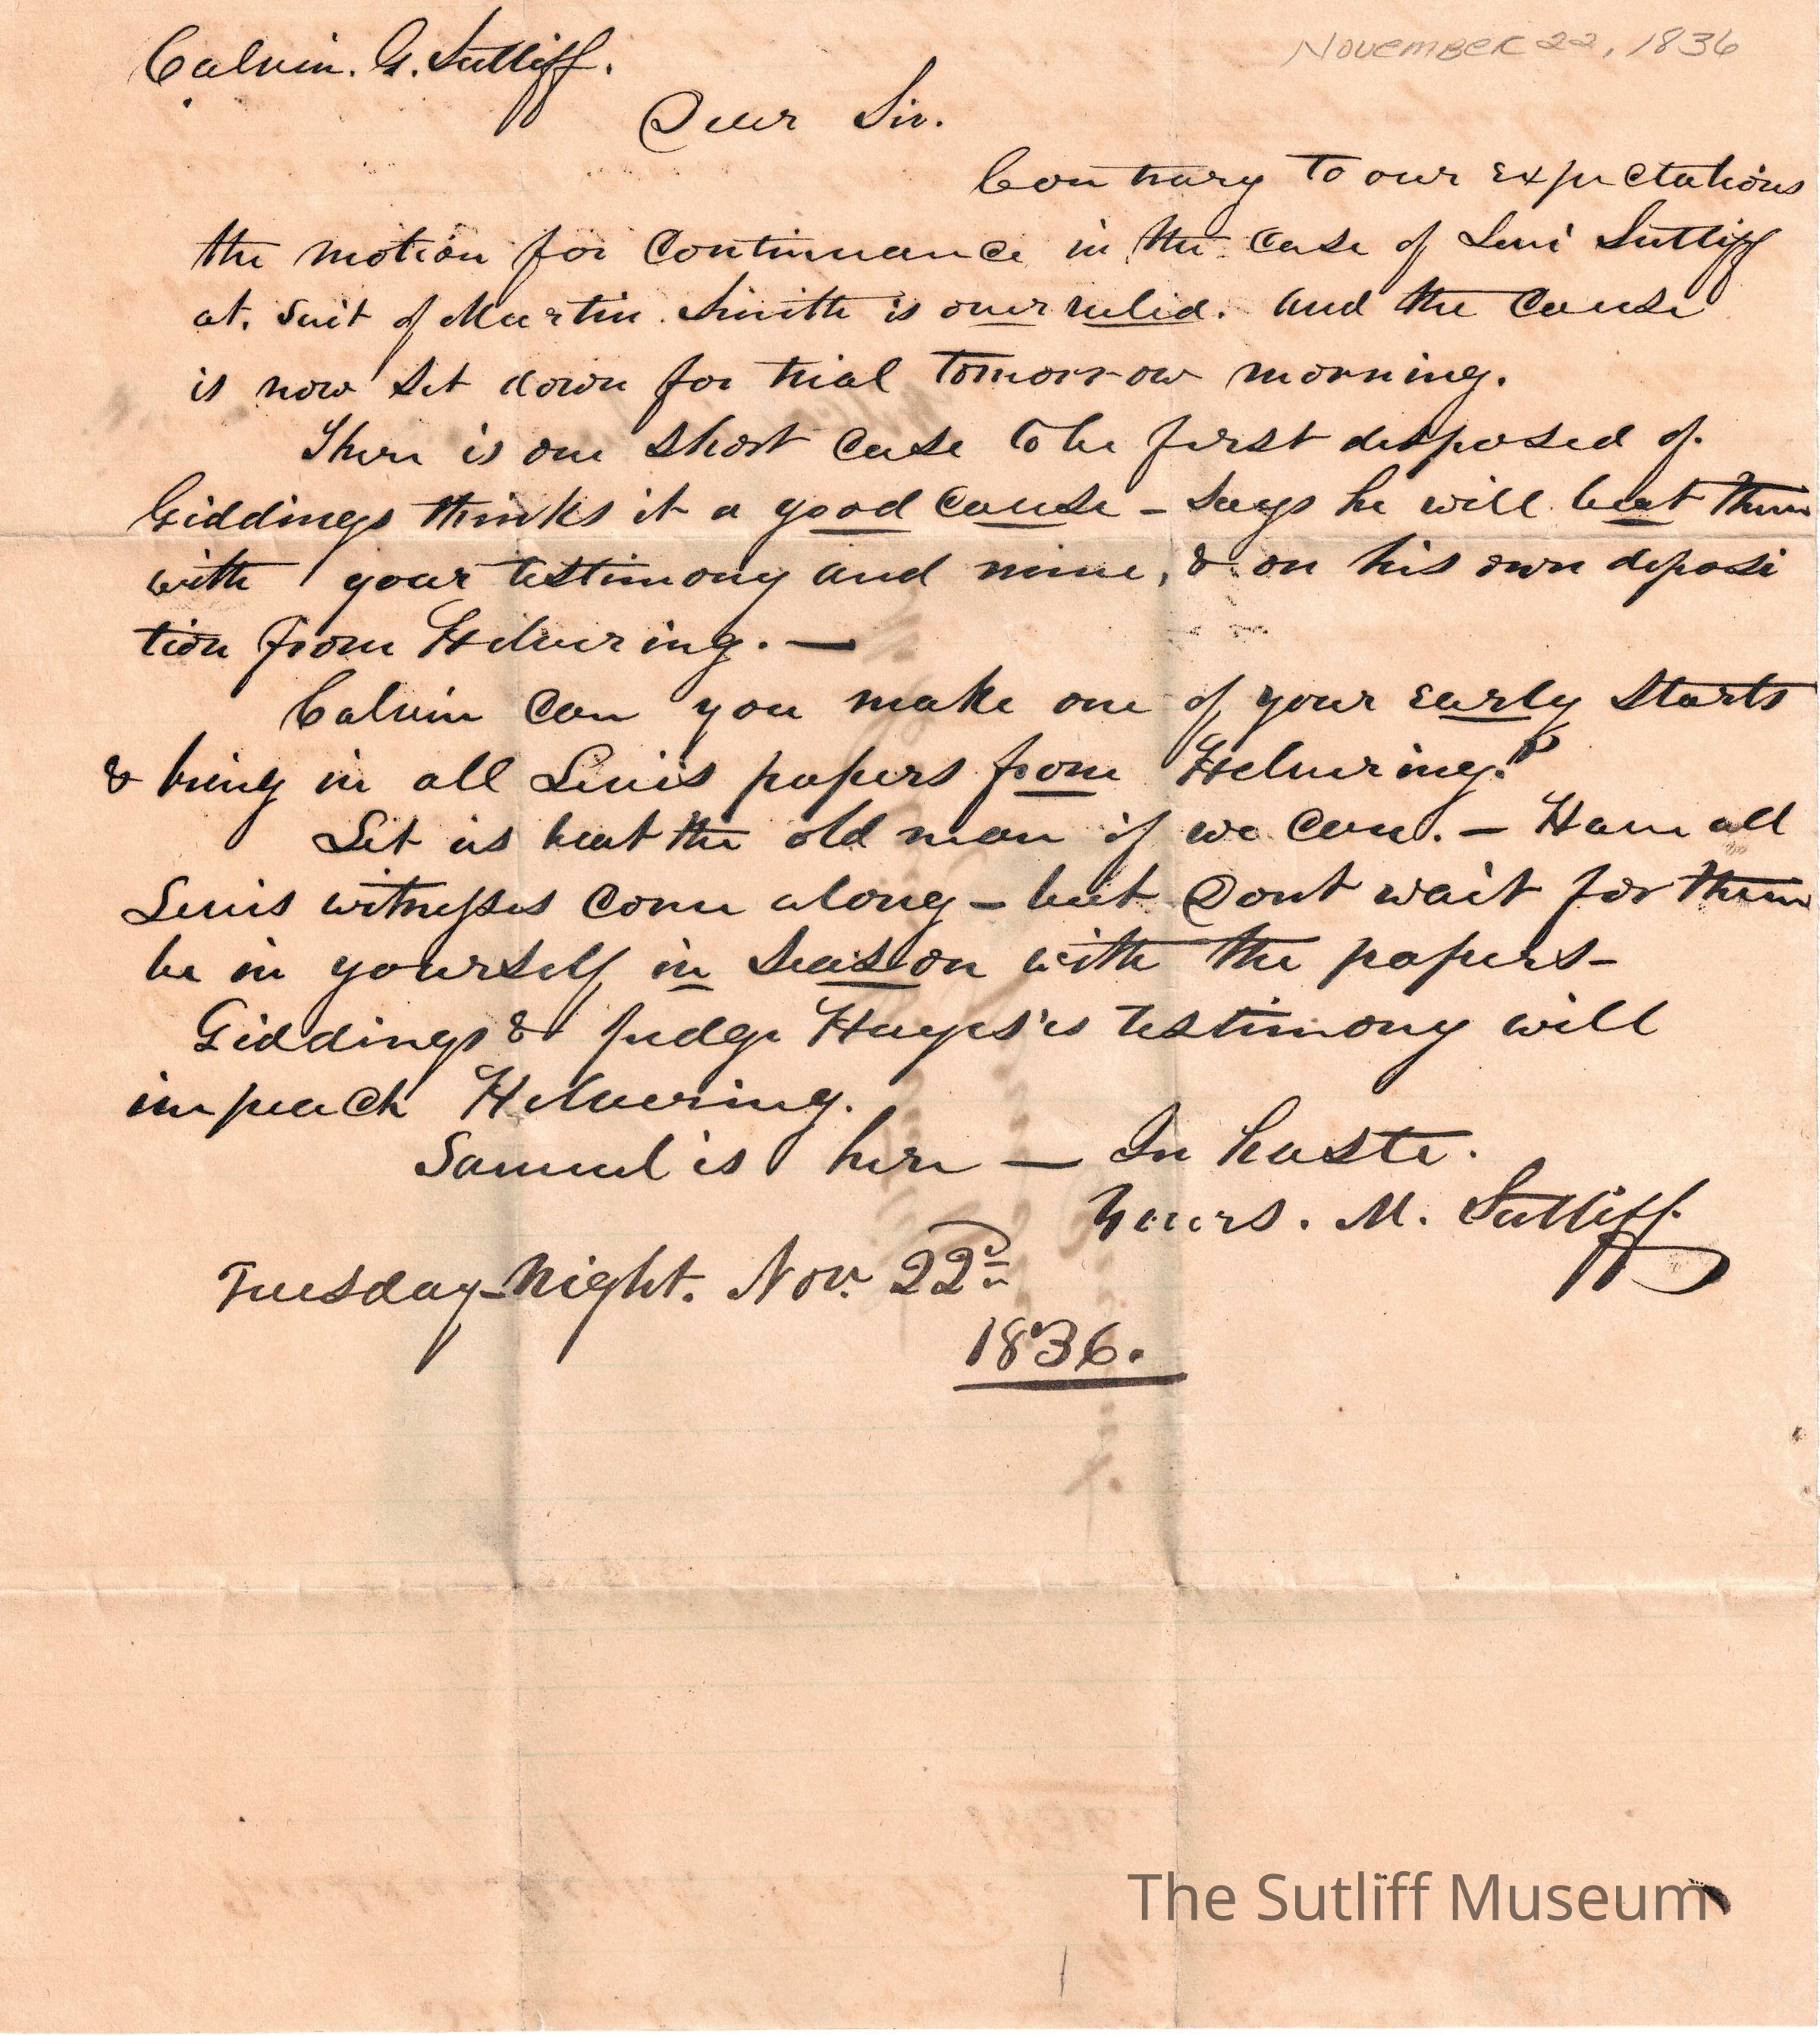 November 22, 1836
Calvin. G. Sutliff.
Dear Sir.
Contrary to our expectations
the motion for continuance in the case of Levi Sutliff
at. suit of Martin. Smith is overruled. and the cause
is now set down for trial tomorrow morning.
There is one short case to be first disposed of.
Giddings thinks it a good cause - says he will beat them
with your testimony and mine, & on his own deposi
tion from Helvering. —
Calvin can you make one of your early starts
& bring in all Levis papers from Helvering?
Let us beat the old man if we can. — Have all
Levis witnesses come along - but Dont wait for them
be in yourself in season with the papers-
Giddings & Judge Hayes's testimony will
impeach Helvering.
Samuel is here — In haste.
Yours. M. Sutliff
Tuesday-Night. Nov. 22d
1836.
The Sutliff Museum